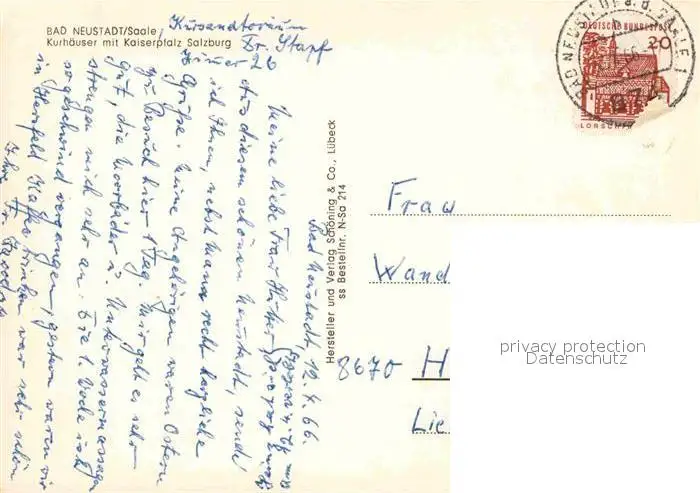 BAD NEUSTADT/Saale,
Kurhäuser mit Kaiserpfalz Salzburg
Kursanatorium
Dr. Stapf
Zimmer 26
Bad Neustadt, 12.4.66.
Meine liebe Frau
Aus diesem schönen Neustadt, sende
ich Ihnen, nebst Mann recht herzliche
Grüße. Meine Angehörigen waren Ostern
zu Besuch hier 1 Tag. Mir geht es sehr
gut, die Moorbäder u. Unterwassermassagen
strengen mich sehr an. Die 1. Woche ist
so geschwind vergangen, gestern waren wir
in Hersfeld Kaffee trinken war sehr schön
Ihre Fr.
Hersteller und Verlag Schöning & Co., Lübeck
ss Bestellnr. N-Sa 214
DEUTSCHE BUNDESPOST
20
LORSCH
BAD NEUSTADT a. d. SAALE 1
Frau
Wand
8670 H
Lie
privacy protection
Datenschutz